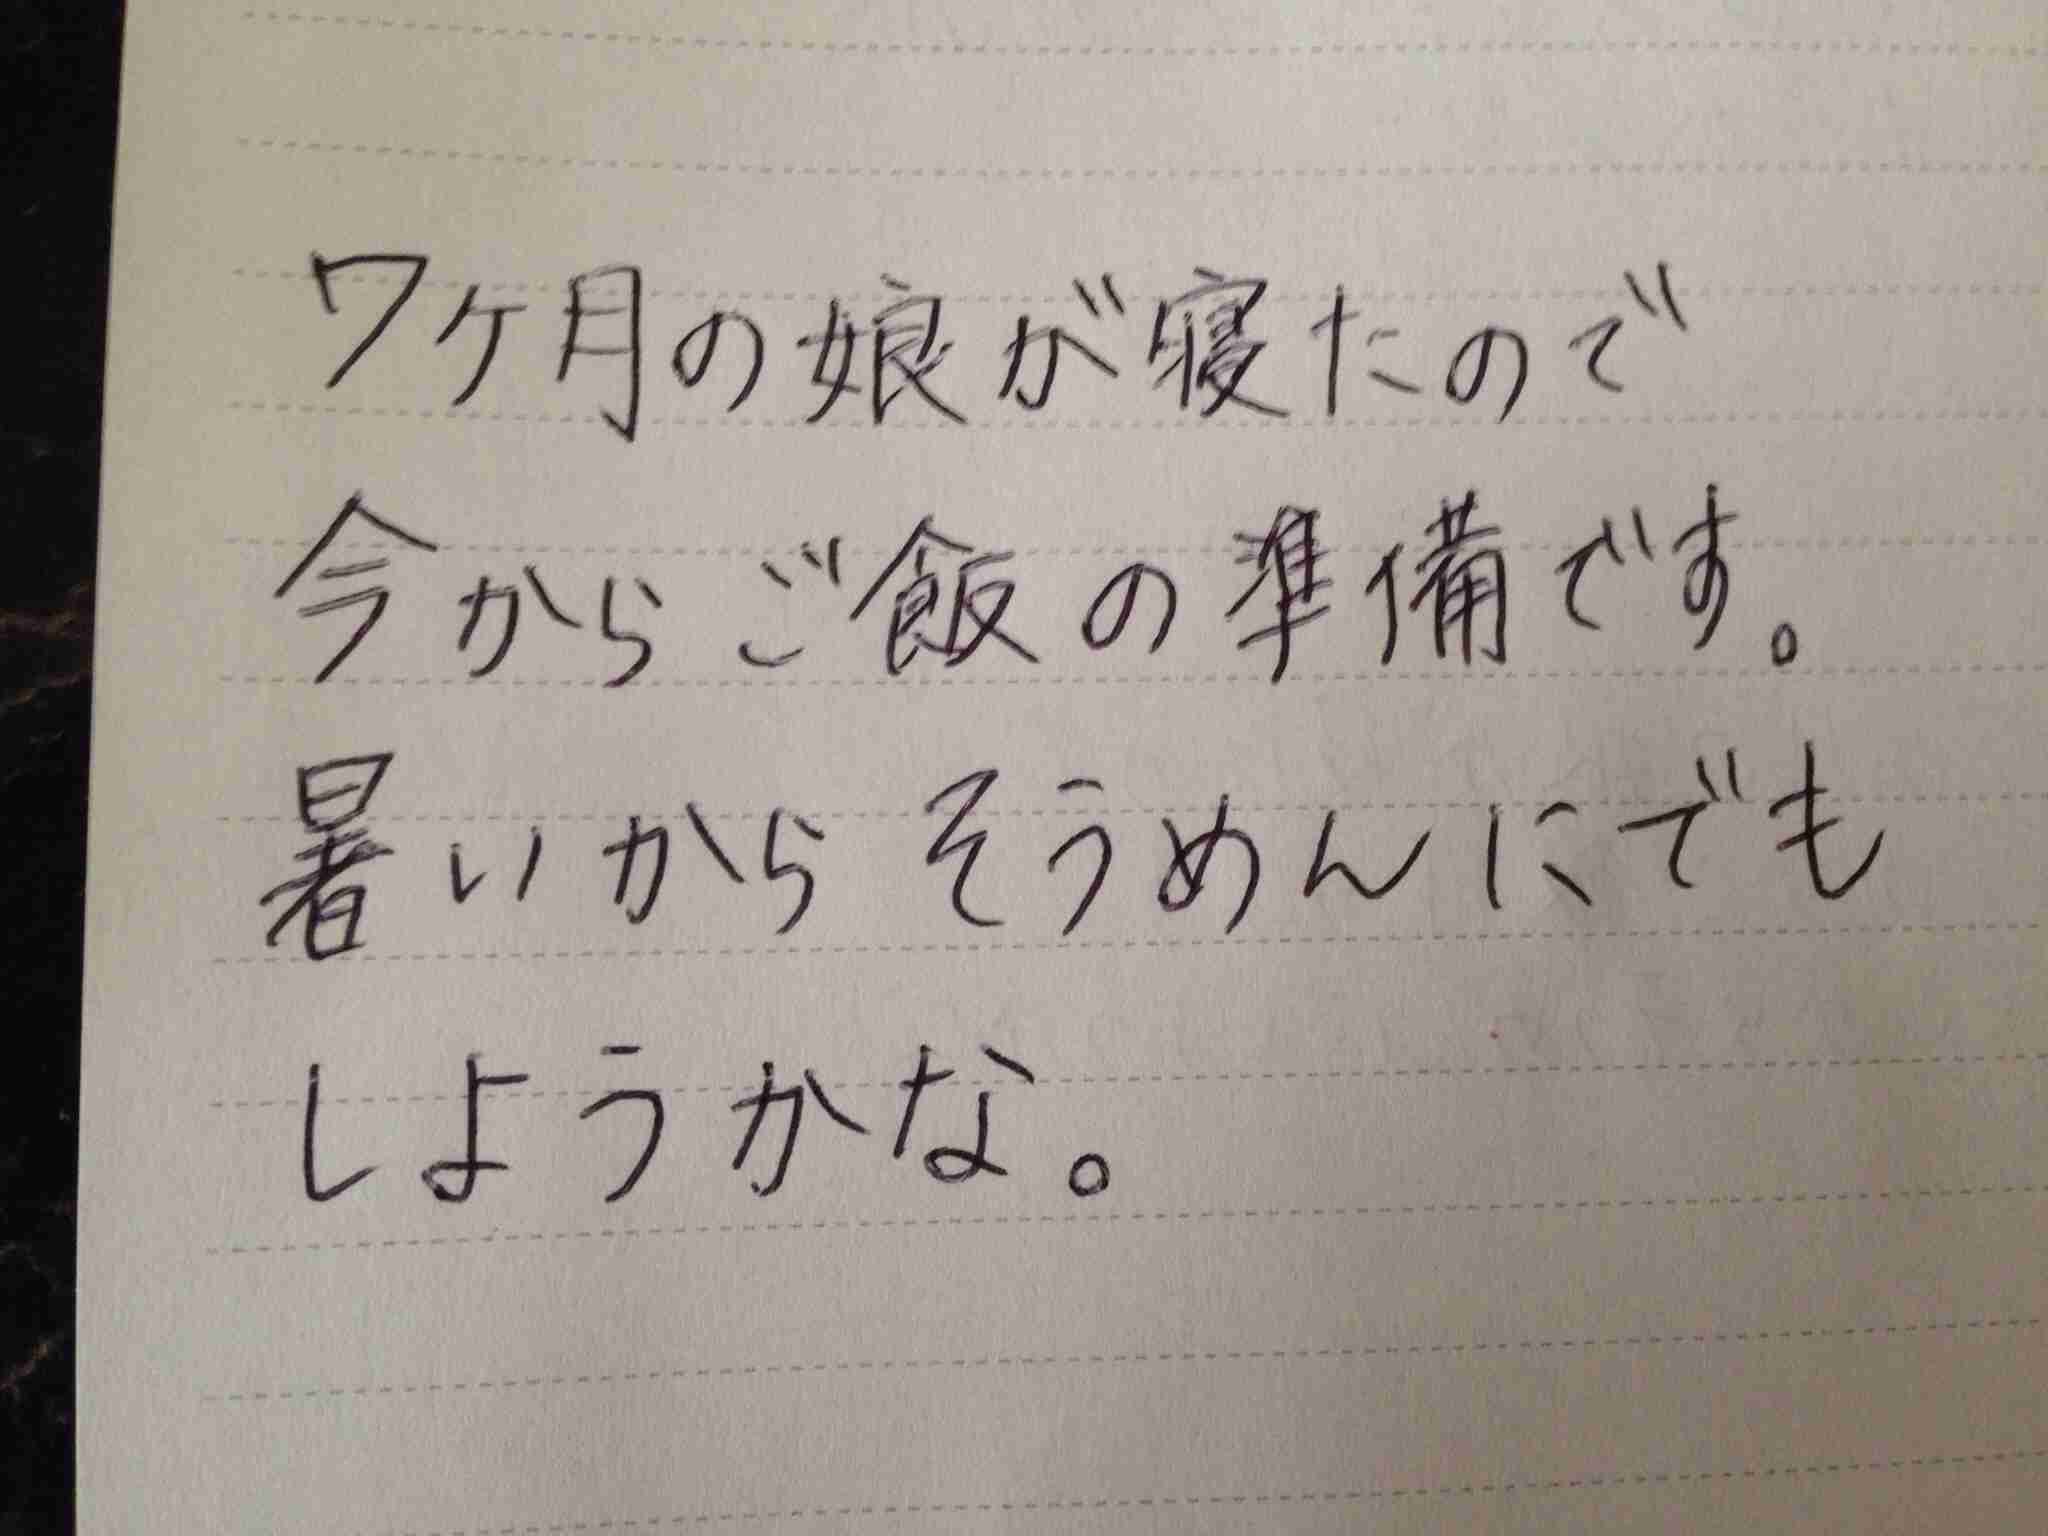 7ヶ月の娘が寝たので
今からご飯の準備です。
暑いからそうめんにでも
しようかな。